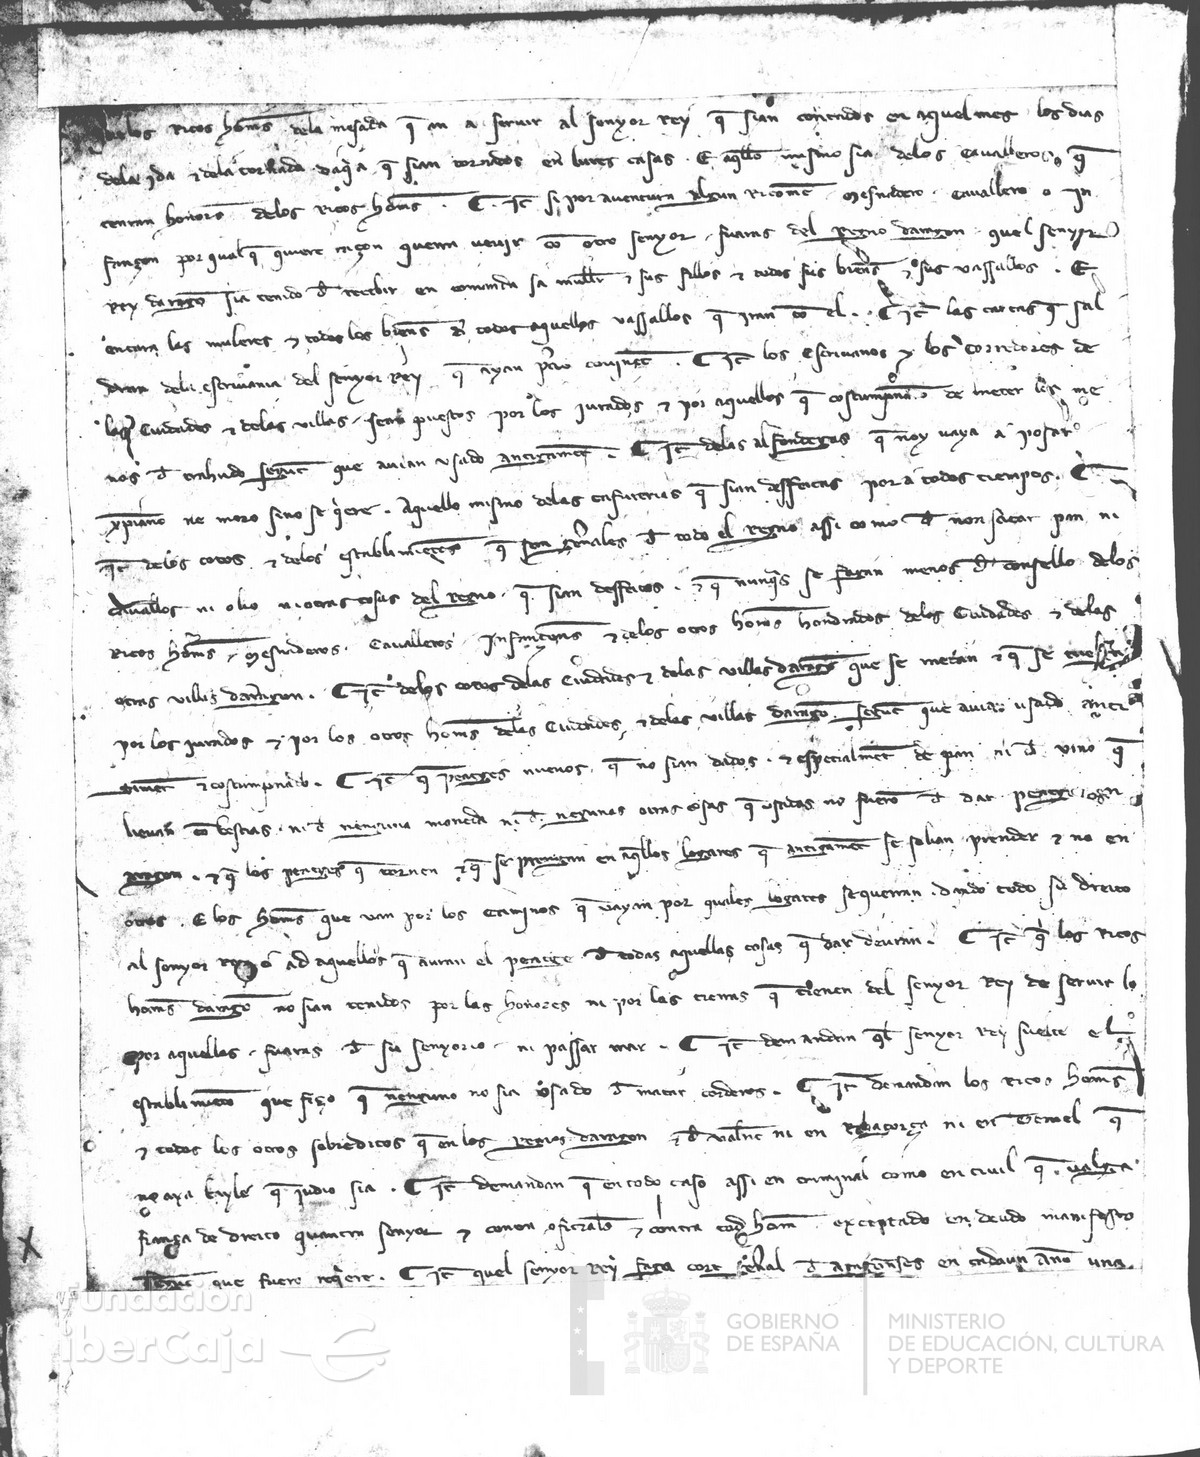 los Ricos homs dela mesnada q an a servir al senyor Rey q sian contados en aquel mes los dias
dela yda e dela tornada daqa q sian tornados en lures casas. E aqllo mismo sia delos Cavalleros q
tenran honors delos Ricos homs. C. Itē si por aventura algun Ricome Mesnadero Cavallero o in
fançon por qual q quiere raçon querra venir cō otro senyor fueras del Regno daragon quel senyor
Rey daragō sia tenido d recebir en comanda sa muller e sus fillos e todos sus biens e sus vassallos. E
encara las mulleres e todos los biens de todos aquellos vassallos q iran cō el. C Itē las cartas q sal
dran dela escrivania del senyor Rey q ayan precio convinēt. C Itē los Escrivanos e los Corredores de
las Ciudades e delas villas sean puestos por los jurados e por aquellos q costumpnado de meter los me
nos d trahudo segunt que avian usado antigamēt. C Itē delas alfondegas q noy vaya a posar
xpiano ne moro sino se qere. Aquello mismo delas tafurerias q sian desfeitas por a todos tiempos. C
Itē delos cotos e delos establimientos q son gñales d todo el regno assi como d non sacar pan ni
cavallos ni olio ni otras cosas del regno q sian desfeitos. e q nunqs se fagan menos d consello delos
Ricos homs Mesnaderos Cavalleros Infançons e delos otros homs hondrados delas Ciudades e delas
otras villas daragon. C Itē delos cotos delas Ciudades e delas villas daragō que se metan e q se
por los jurados e por los otros homs delas Ciudades e delas villas daragō segunt que avian usado anti
gamēt e costumpnado. C Itē q peages nuevos q no sian dados. e especialmēt de pan ni d vino q
lievan cō bestias. ni d nenguna moneda ni d negunas otras cosas q usadas no fueron d dar peage en
Aragon. e q los peages q tornen e q se prengan en aqllos logares q antigamēt se solian prender e no en
otros. E los homs que van por los caminos q vayan por quales logares se querran. dando todo su dreito
al senyor Rey o ad aquellos q auran el peatge d todas aquellas cosas q dar devran. C Itē q los Ricos
homs daragō no sian tenidos por las honores ni por las tierras q tienen del senyor Rey de servir lo
por aquellas fueras d su senyorio ni passar mar. C Itē demandan ql senyor Rey suelte el
establimiēto que fiço q nenguno no sia usado d matar corderos. C Itē demandan los Ricos homs
e todos los otros sobreditos q en los Regnos daragon e d valēnc ni en Ribagorça ni en Teruel q
no aya bayle q judio sia. C Itē demandan q en todo caso assi en criminal como en civil q valga
fiança de dreito quantra senyor e contra oficiales e contra tod hom exceptado en deudo manifesto
segunt que fuere nqere. C Itē quel senyor Rey faga cort gñal d aragoneses en cadaun año una
Fundación
iberCaja
GOBIERNO
DE ESPAÑA
MINISTERIO
DE EDUCACIÓN, CULTURA
Y DEPORTE